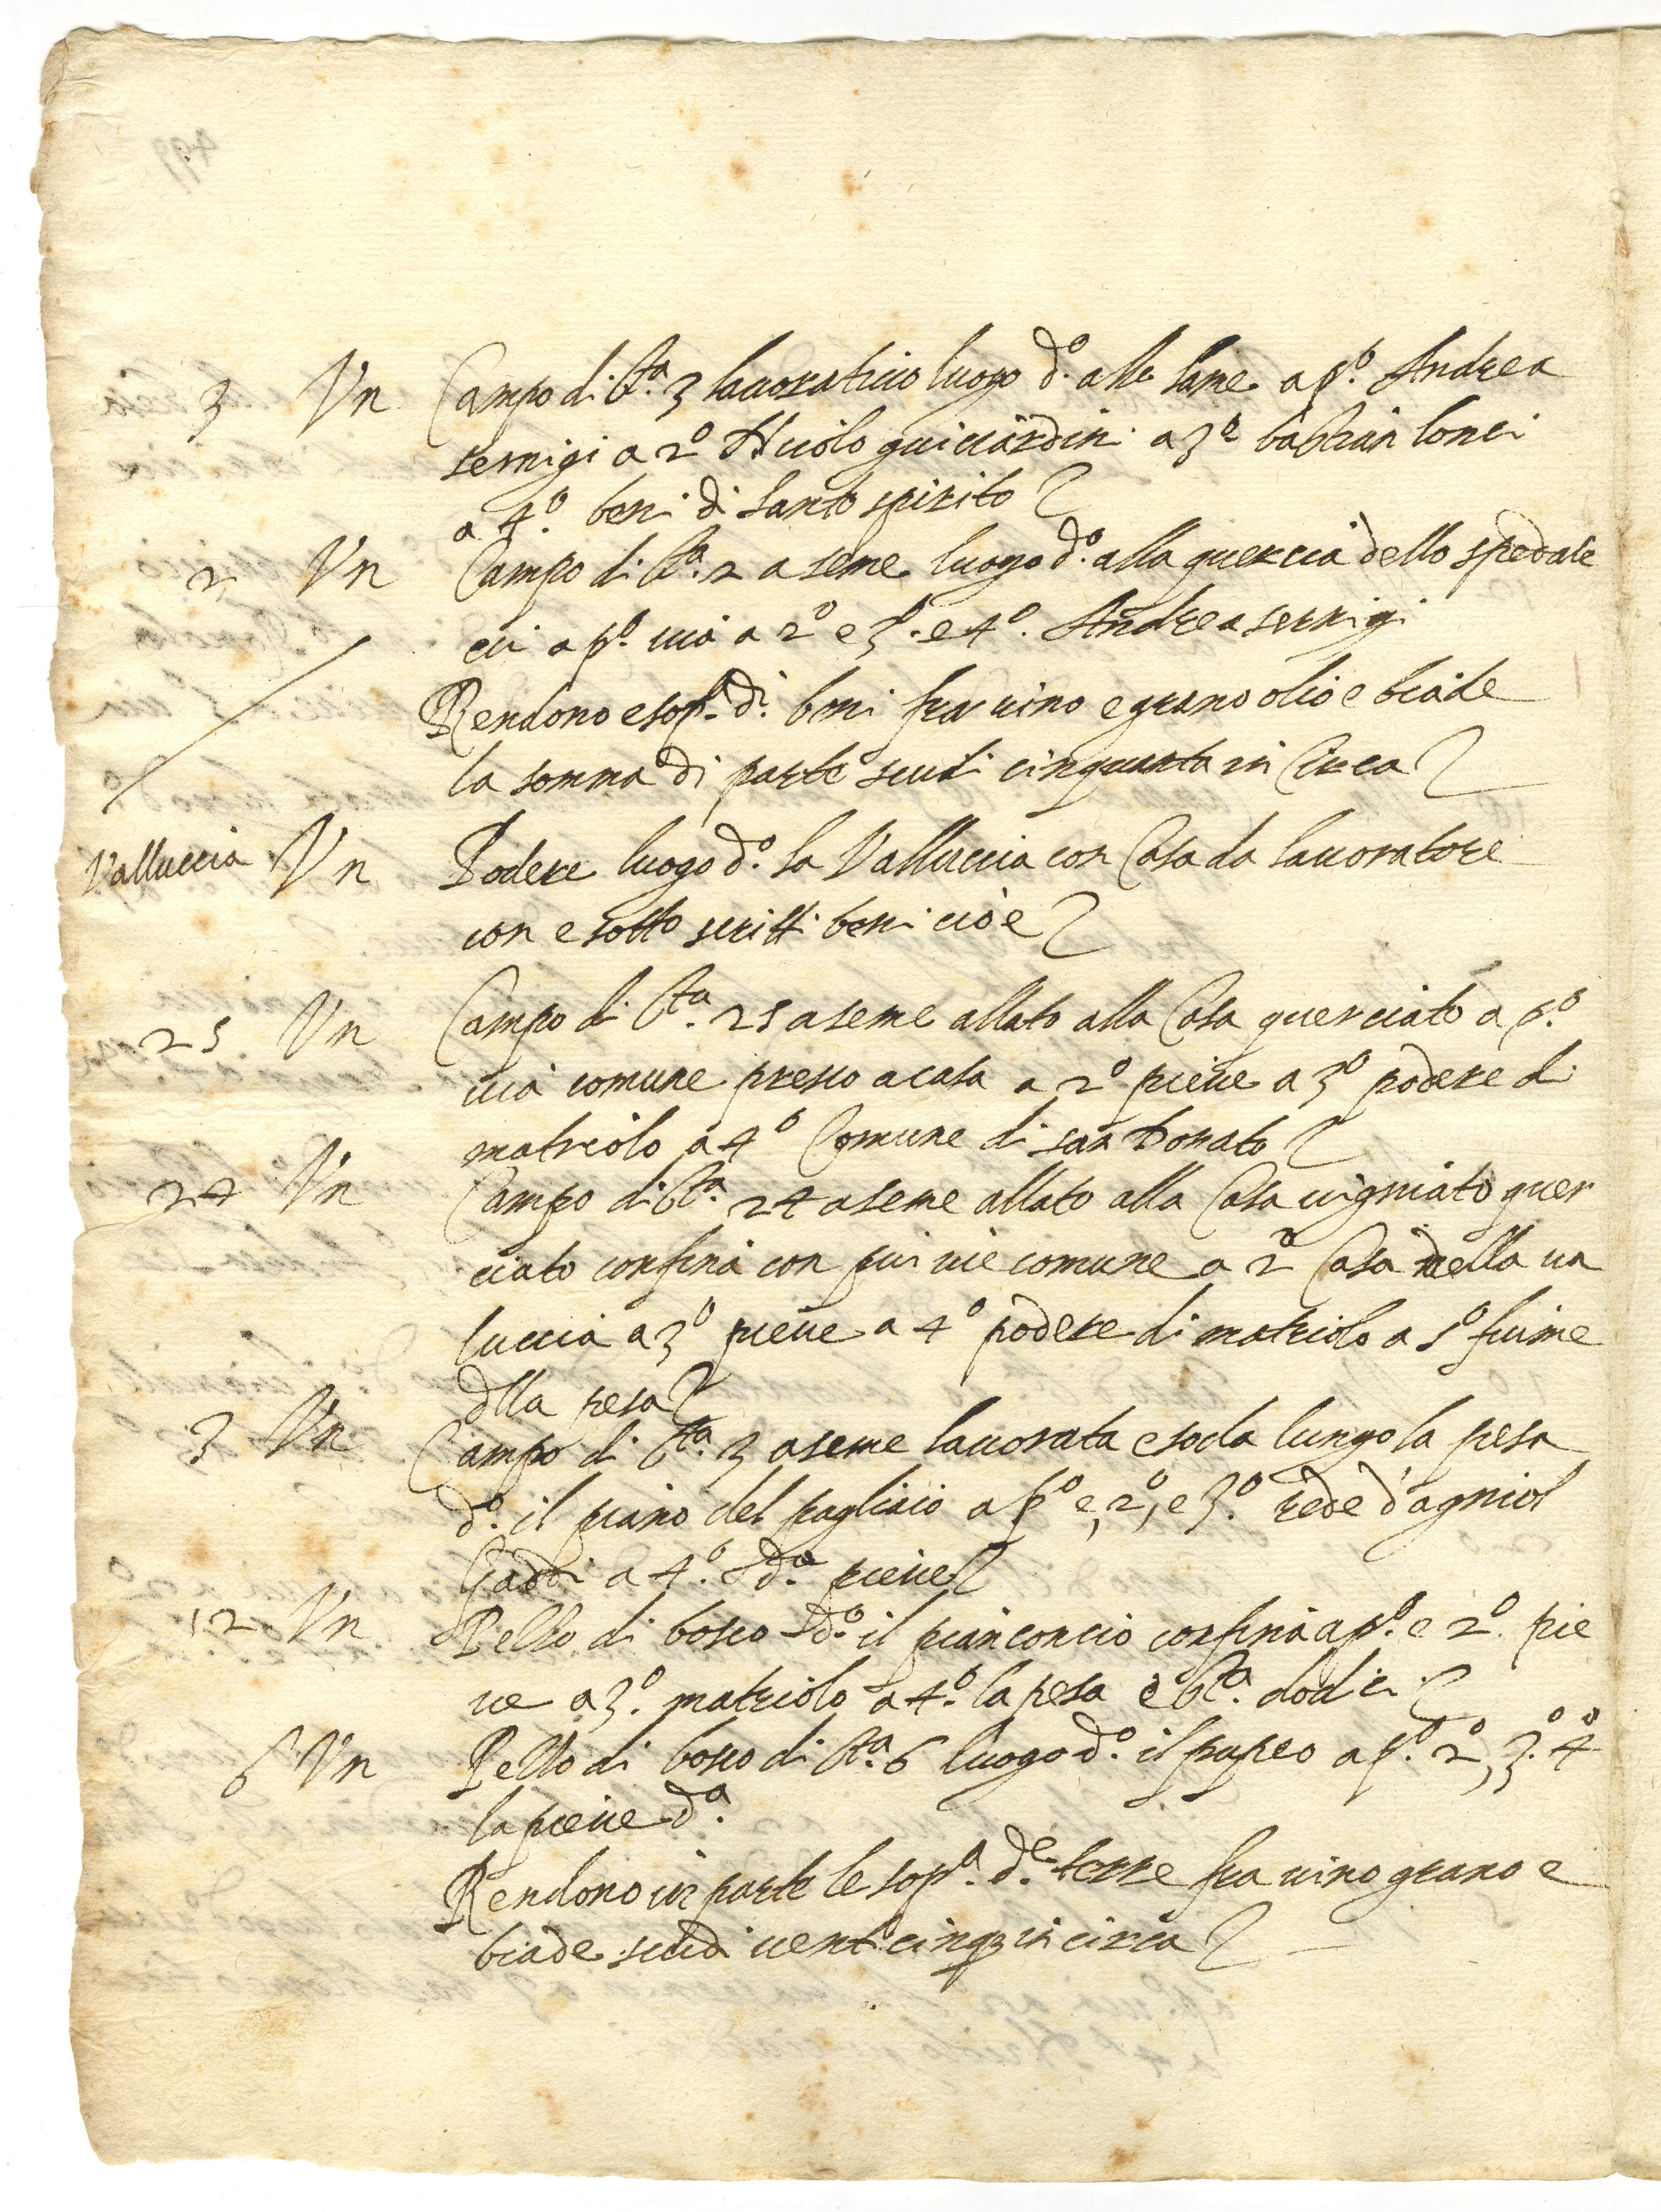 3 Vn Campo di Sta. 3 lauoraticio luogo do. alle lame a po. Andrea
sernigi a 2o Nicolo guicciardini a 3o bastian
a 4o. beni di santo spirito
2 Vn Campo di Sta. 2 a seme luogo do. alla quercia dello spedale
a po. uia a 2o e 3o. e 4o. Andrea sernigi
Rendono e sopa. di. beni fra uino e grano olio e biade
la somma di parte scudi cinquanta in Circa
Valluccia Vn Podere luogo do. la Valluccia con Casa da lauoratore
con e sotto scritti beni cioe
25 Vn Campo di Sta. 25 a seme allato alla Casa querciato a po.
uia comune presso a casa a 2o pieue a 3o podere di
matriolo a 4o Comune di san Donato
24 Vn Campo di Sta. 24 a seme allato alla Casa uigniato quer
ciato confina con uie comune a 2o Casa della ua
luccia a 3o pieue a 4o podere di matriolo a 5o fiume
dlla pesa
3 Vn Campo di Sta. 3 a seme lauorata e soda lungo la pesa
do. il piano del pagliaio a po e, 2o, e 3o. rede d'agniol
Gaddi a 4o. da. pieue
12 Vn Pezzo di bosco do. il pianconcio confina a po. e 2o. pie
ue a 3o. matriolo a 4o. la pesa e Sta. dodici
6 Vn Pezzo di bosco di Sta. 6 luogo do. il a po. 2o, 3o. 4o
la pieue da.
Rendono in parte le sopa. de. terre fra uino grano e
biade scudi uenticinq3 in circa